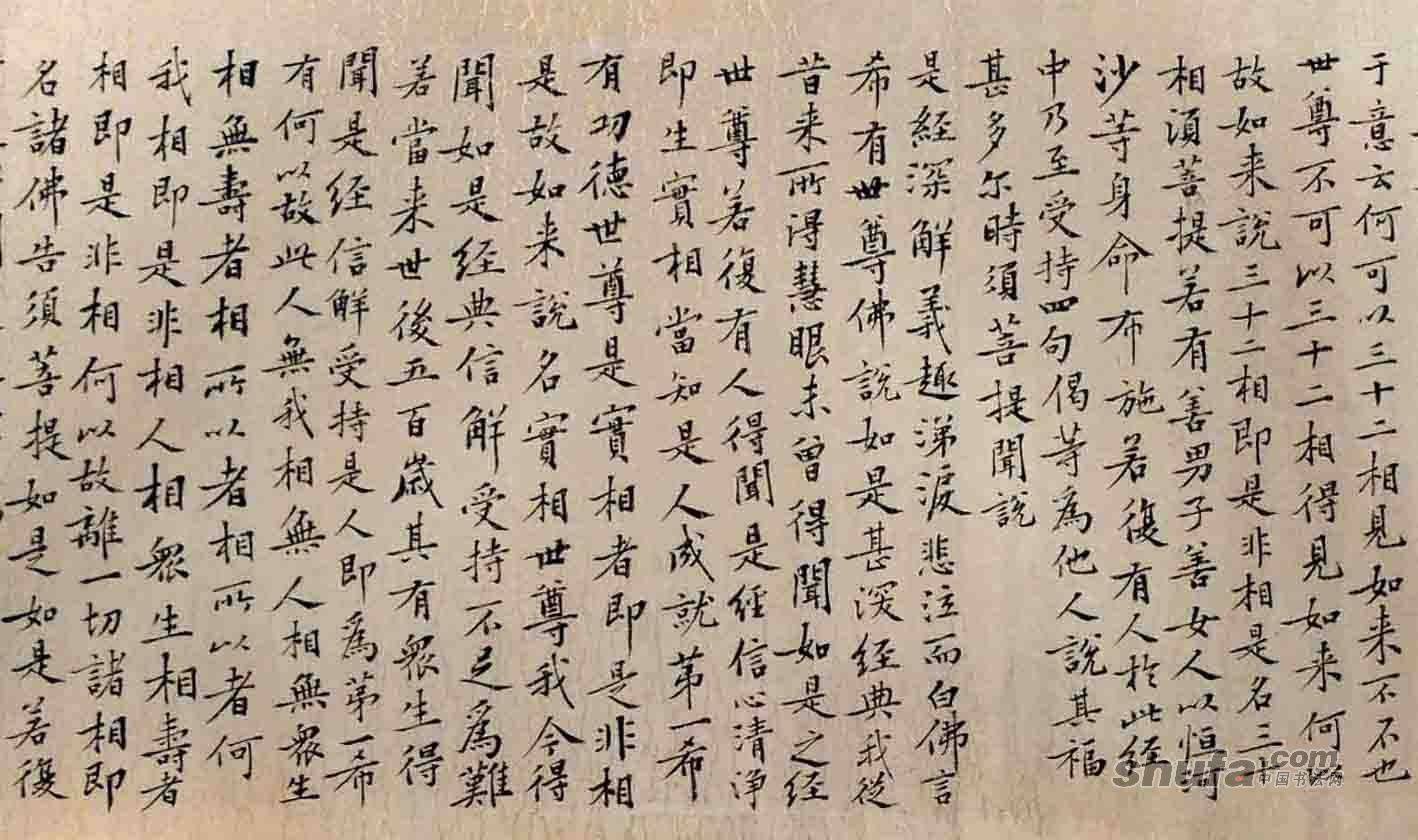 于意云何可以三十二相見如来不不也
世尊不可以三十二相得見如来何以
故如来說三十二相即是非相是名三十
相須菩提若有善男子善女人以恒河
沙等身命布施若復有人於此経
中乃至受持四句偈等為他人說其福
甚多尔時須菩提聞說
是経深解義趣涕淚悲泣而白佛言
希有世尊佛說如是甚深経典我従
昔来所得慧眼未曽得聞如是之経
世尊若復有人得聞是経信心清淨
即生實相當知是人成就第一希
有功德世尊是實相者即是非相
是故如来說名實相世尊我今得
聞如是経典信解受持不足為難
若當来世後五百歳其有衆生得
聞是経信解受持是人即為第一希
有何以故此人無我相無人相無衆生
相無壽者相所以者相所以者何
我相即是非相人相衆生相壽者
相即是非相何以故離一切諸相即
名諸佛告須菩提如是如是若復
shufa.com
中国书法网